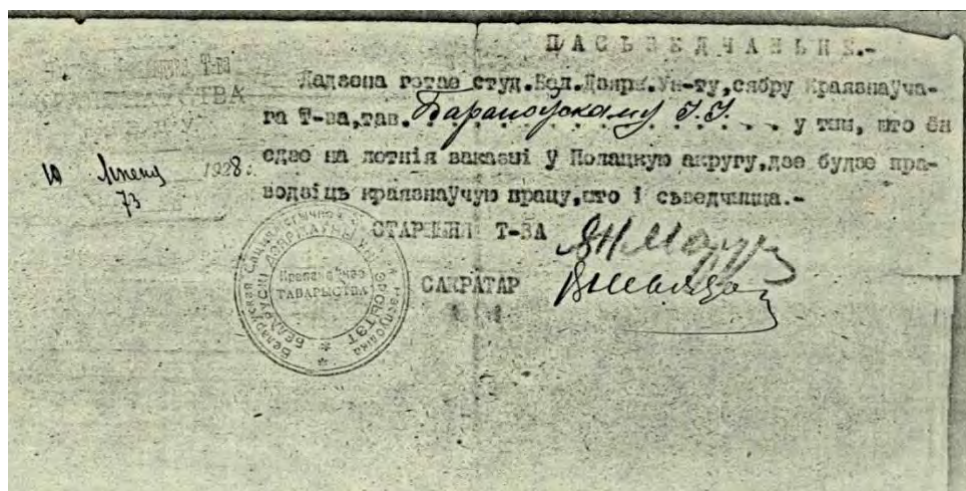 ПАСЬВЕДЧАНЬНЕ.-
Т-ва
Дадзена гэтае студ. Бел. Дзярж. Ун-ту, сябру Краязнаўча-
га Т-ва, тав. Бараноўскому І.І. у тым, што ён
едзе на летнія вакацыі ў Полацкую акругу, дзе будзе пра-
водзіць краязнаўчую працу, што і сьведчыцца.-
10 Ліпеня 1928.
73
СТАРШЫНЯ Т-ВА
САКРАТАР
Беларуская Сацыялістычная Рэспубліка
БЕЛАРУСКІ ДЗЯРЖАЎНЫ УНІВЭРСЫТЭТ
Краязнаўчае
ТАВАРЫСТВА